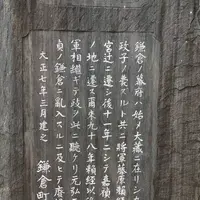 鎌倉ノ幕府ハ始メ大蔵ニ在リシカ
政子ノ薨スルト共ニ将軍藤原頼経
宮辻ニ遷シ後十一年ニシテ嘉禎
ノ地ニ遷ス爾来九十八年頼経以後
軍相継ギテ政ヲ此ニ聴ク元弘三
貞ノ鎌倉ニ乱入スルニ及ヒ
大正七年三月建之
鎌倉町